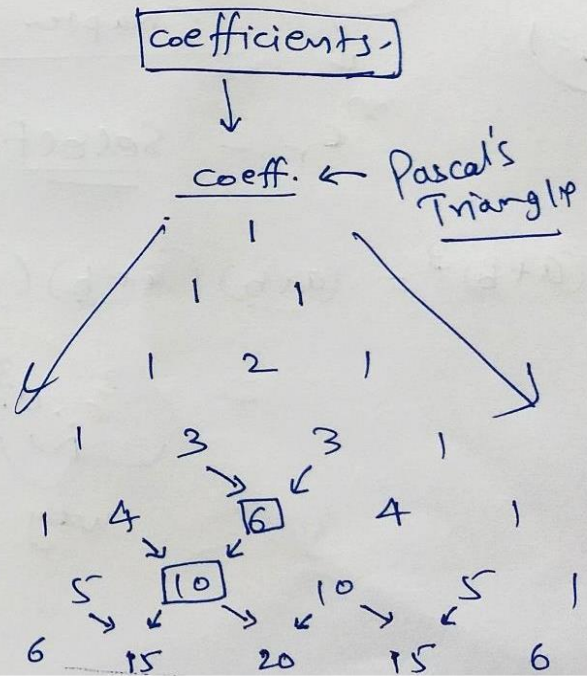 coefficients.
coeff. ← Pascal's
Triangle
1
1 1
1 2 1
1 3 3 1
1 4 6 4 1
5 10 10 5 1
6 15 20 15 6